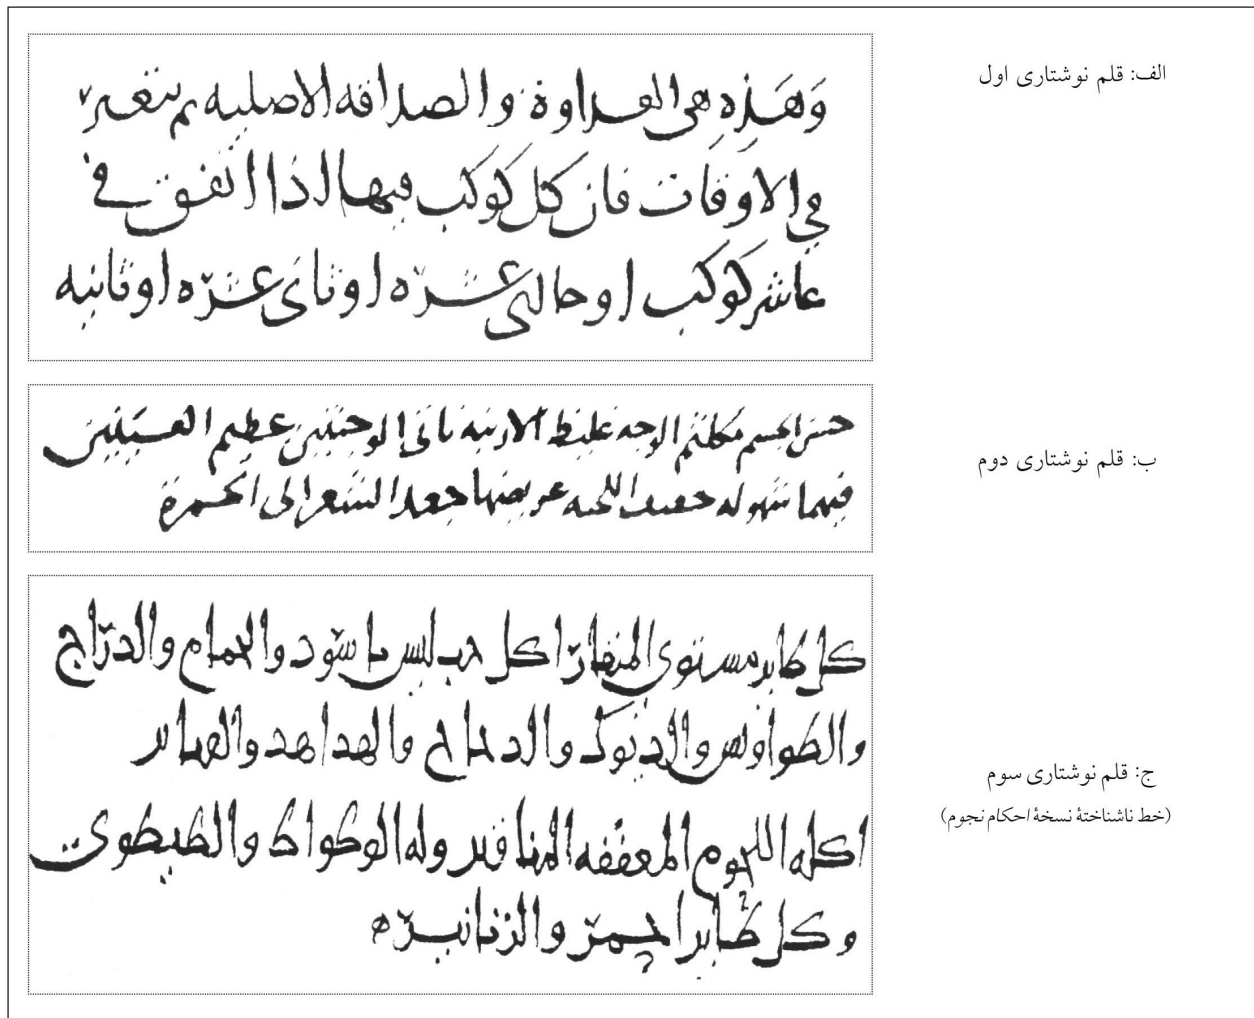 الف: قلم نوشتاری اول
وَهَذِهِ هي العداوة والصداقه الاصليه ثم يتغير
في الاوقات فان كل كوكب فيها اذا اتفق في
عاشر كوكب او حادى عشره او ثانى عشره او ثانيه
ب: قلم نوشتاری دوم
حسن الجسم مكلثم الوجه غليظ الارنبه ناتى الوجنتين عظيم العينين
فيهما شهوله خفيف اللحيه عريضها جعد الشعر الى الحمرة
ج: قلم نوشتاری سوم
(خط ناشناختهٔ نسخهٔ احکام نجوم)
كل طاير مستوى المنقار اكل حب ليس باسود والحمام والدرّاج
والطواوس والديوك والدجاج والهداهد
اكله اللحوم المعقفه المناقير وله الوطواط والطيطوى
وكل طاير احمر والزنانيره